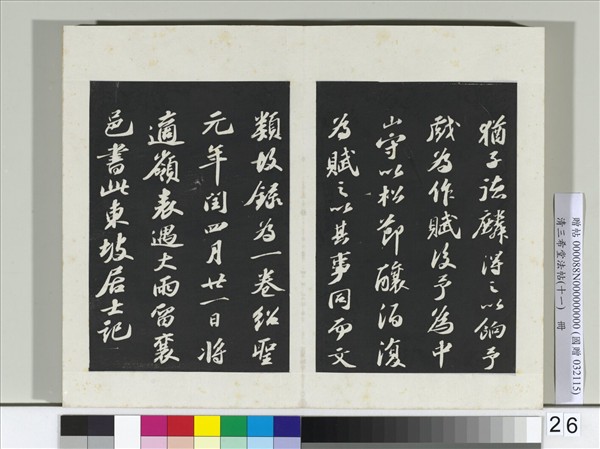 猶子德麟得之以餉予
戲為作賦後予為中
山守以松節釀酒復
為賦之以其事同而文
類故錄為一卷紹聖
元年閏四月廿一日將
適嶺表遇大雨留襄
邑書此東坡居士記
贈帖 000088N000000000 (國贈 032115)
清三希堂法帖(十一) 冊
26